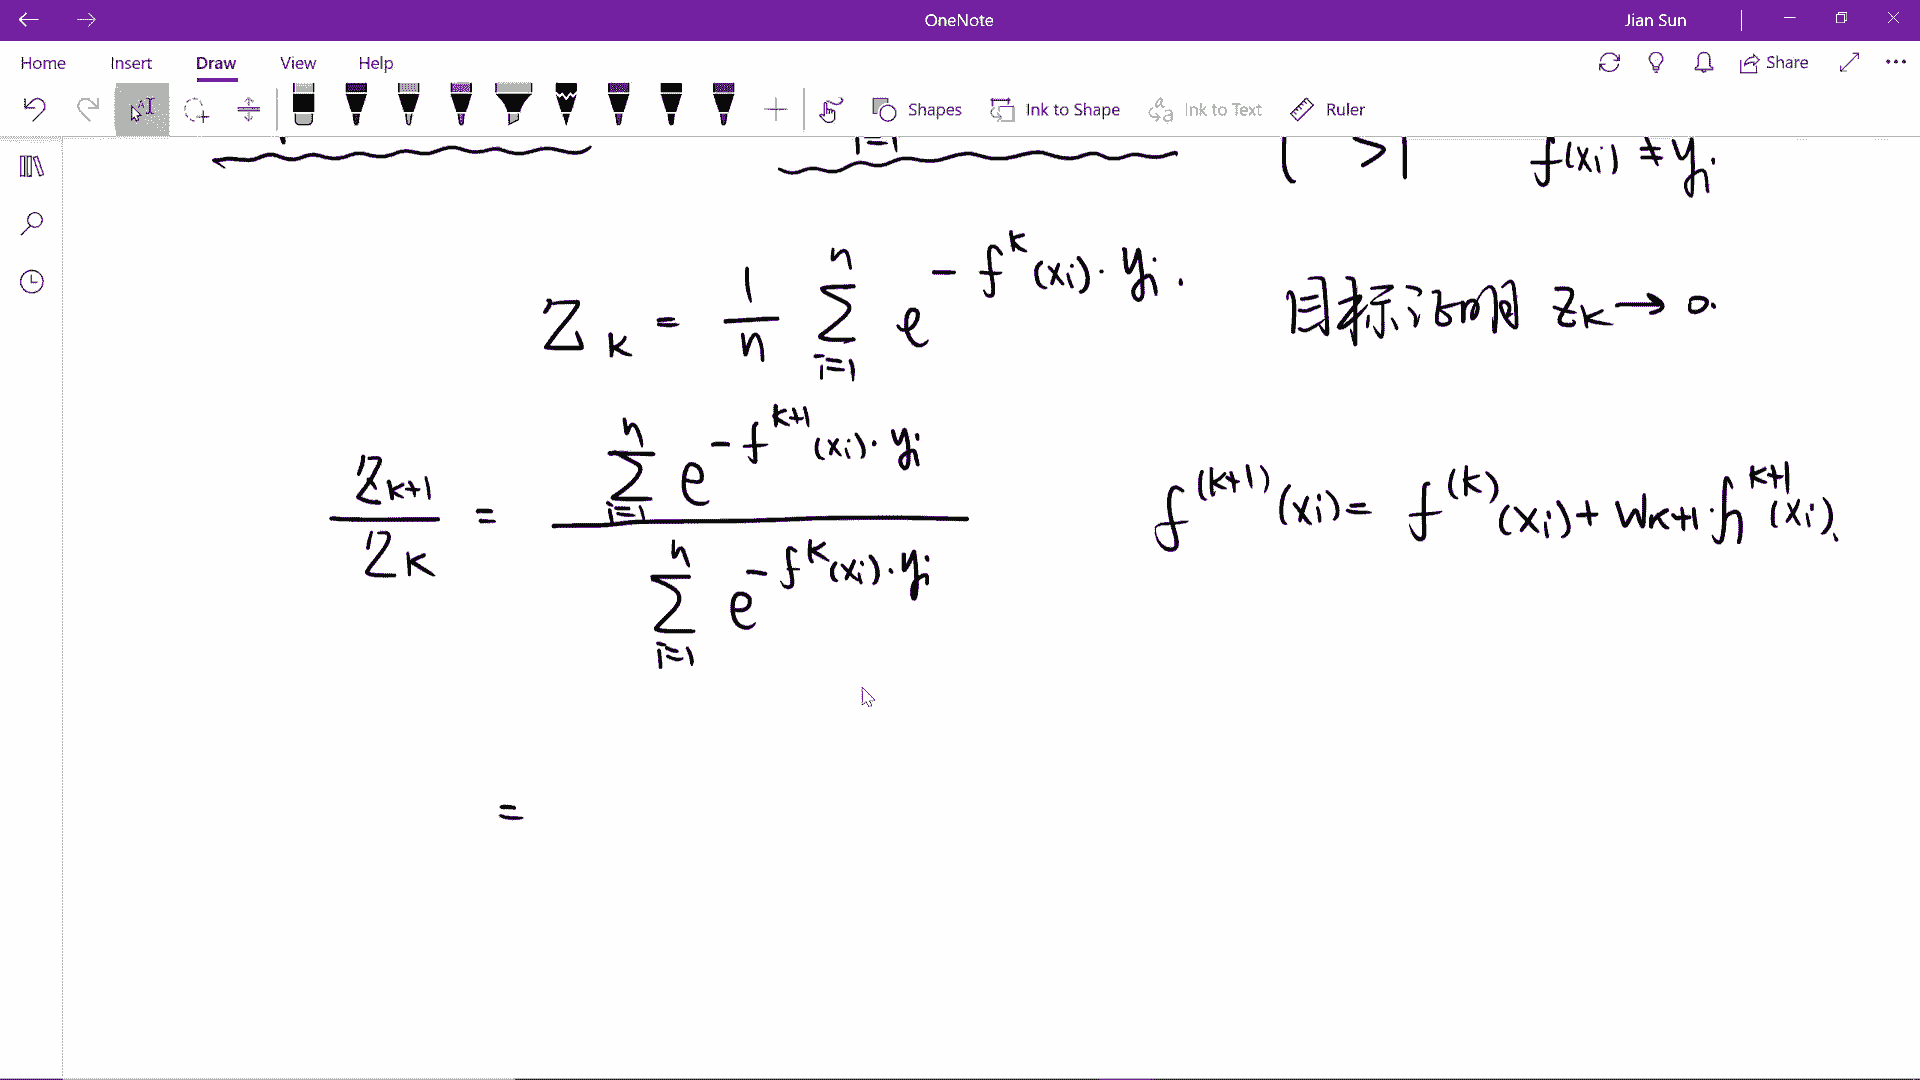 OneNote
Jian Sun
Home Insert Draw View Help
Share
Shapes Ink to Shape Ink to Text Ruler
i=1
( >1 f(xi) ≠ yi
Z_k = 1/n ∑_{i=1}^{n} e^{-f^k(xi)·yi}. 目标证明 Z_k → 0.
Z_{k+1}/Z_k = ∑_{i=1}^{n} e^{-f^{k+1}(xi)·yi} / ∑_{i=1}^{n} e^{-f^k(xi)·yi} f^{(k+1)}(xi) = f^{(k)}(xi) + W_{k+1}·h^{k+1}(xi).
=